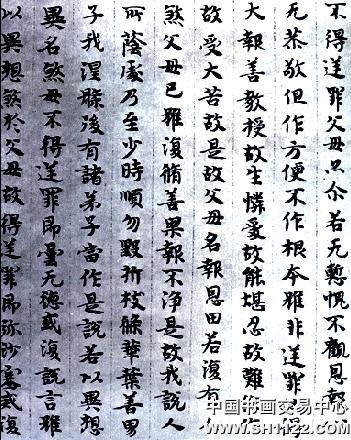 不得逆罪父母只尔若无慙愧不觀恩報
无恭敬但作方便不作根本雖非逆罪得
大報善教授故生憐愛故能堪忍故難作作
故受大苦故是故父母名報恩田若復有
煞父母已雖復脩善果報不淨是故我說人
所蔭處乃至少時慎勿毀折枝條華葉善男
子我涅槃後有諸弟子當作是說若以異想
異名煞父母不得逆罪即曇无德或復說言雖
以異想煞於父母故得逆罪即弥沙塞或復
中国书画交易中心
www.SH1122.COM